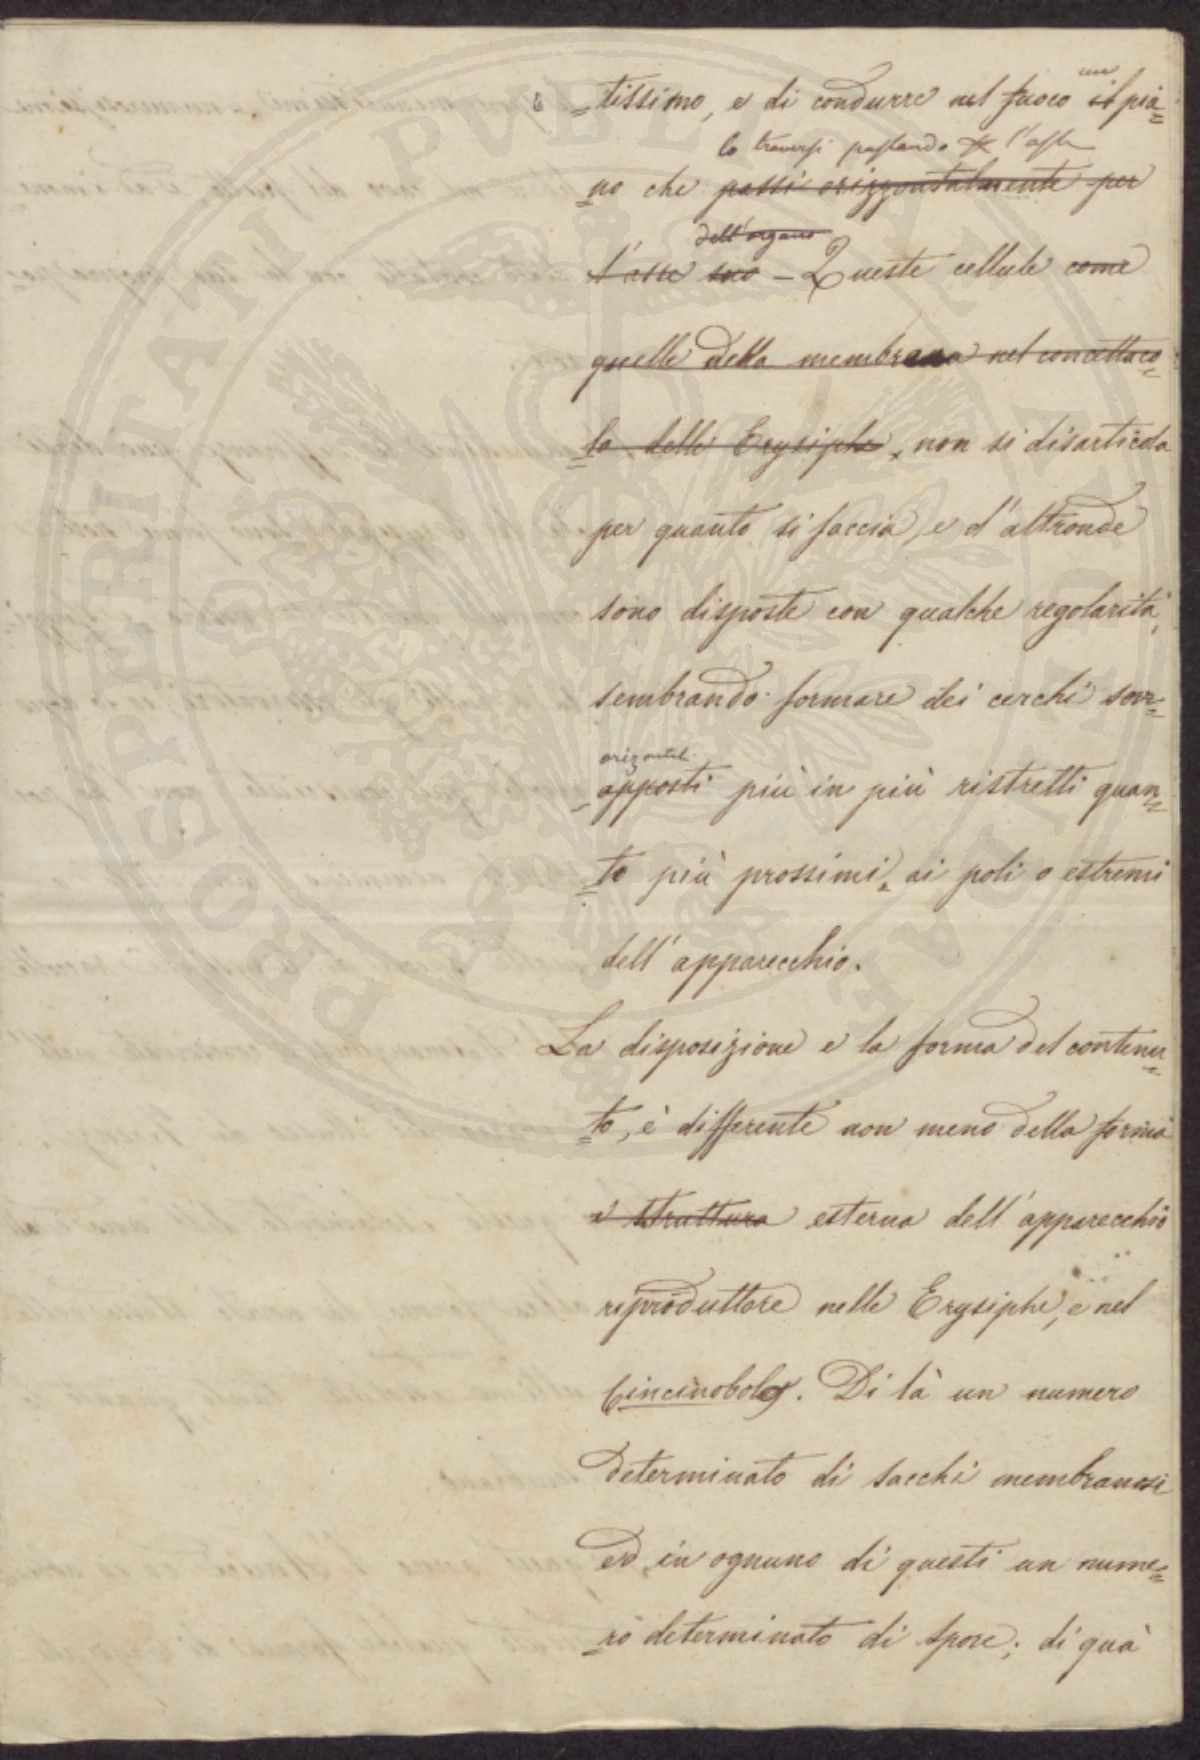 un
=tissimo, e di condurre nel fuoco il pia=
lo traversi passando l'asse
no che passi orizzontalmente per
dell'organo
l'asse suo – Queste cellule come
quelle della membrana nel concettaco=
=lo delle Erysiphe, non si disarticola
per quanto si faccia, e d'altronde
sono disposte con qualche regolarità,
sembrando formare dei cerchi sovr=
orizontal.
=apposti più in più ristretti quan=
=to più prossimi, ai poli o estremi
dell'apparecchio.
La disposizione e la forma del contenu=
=to, è differente non meno della forma
e struttura esterna dell'apparecchio
riproduttore nelle Erysiphe, e nel
Cincinobolo. Di là un numero
determinato di sacchi membranosi
ed in ognuno di questi un nume=
=ro determinato di spore; di quà
PROSPERITATI PUBLICAE AUGENDAE